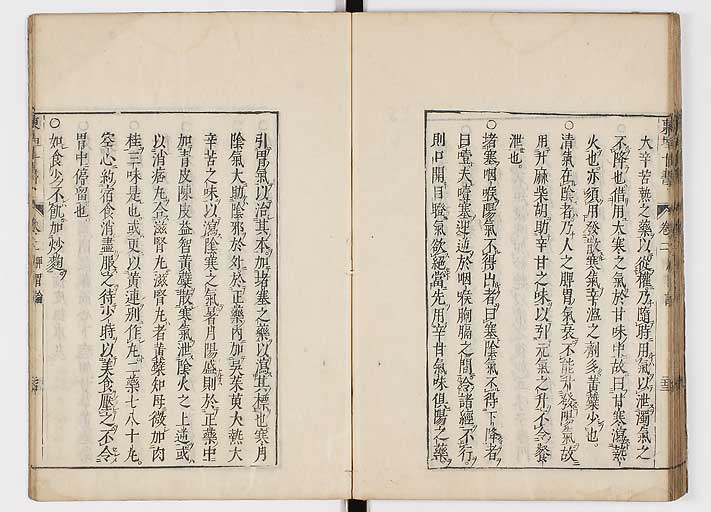 大辛苦熱之藥以從權乃隨時用氣以泄濁氣之
不降也借用大寒之氣於甘味中故曰甘寒瀉熱
火也亦須用發散寒氣辛溫之劑多黃蘗少也
○清氣在陰者乃人之脾胃氣衰不能升發陽氣故
用升麻柴胡助辛甘之味以引元氣之升不令飱
泄也
○堵塞咽喉陽氣不得出者曰塞陰氣不得下降者
曰噎夫噎塞迎逆於咽喉胸膈之間令諸經不行
則口開目瞪氣欲絕當先用辛甘氣味俱陽之藥
引胃氣以治其本加堵塞之藥以瀉其標也寒月
陰氣大助陰邪於外於正藥內加吳茱萸大熱大
辛苦之味以瀉陰寒之氣暑月陽盛則於正藥中
加青皮陳皮益智黃蘗散寒氣泄陰火之上逆或
以消痞丸合滋腎丸滋腎丸者黃蘗知母微加肉
桂三味是也或更以黃連別作丸二藥七八十丸
空心約宿食消盡服之待少時以美食壓之不令
胃中停留也
○如食少不飢加炒麴
卷二 脾胃論